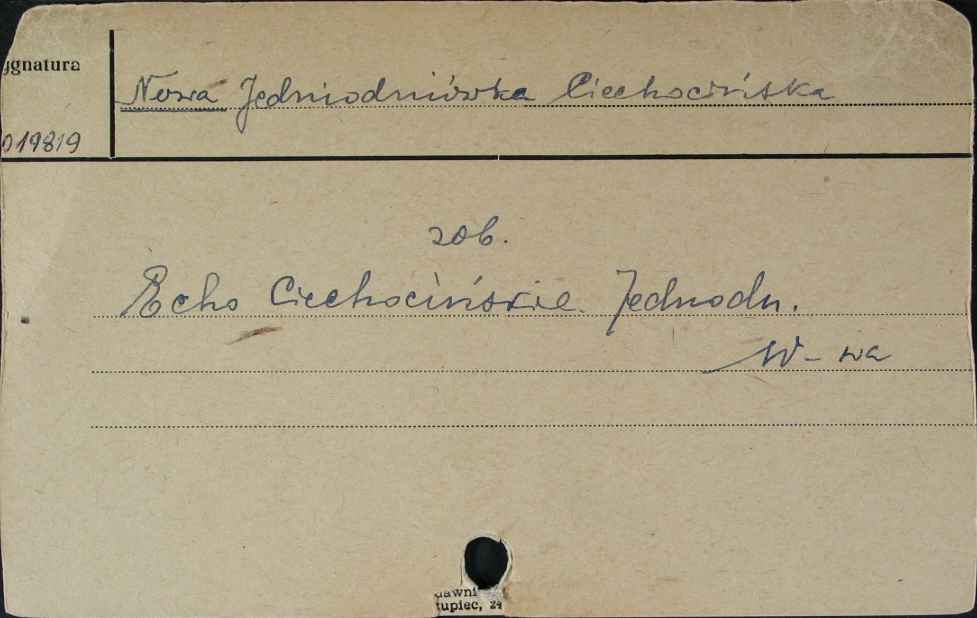 ygnatura
Nowa Jedniodniówka Ciechocińska
019819
zob.
Echo Ciechocińskie. Jednodn.
W-wa
dawni
tupiec, 24